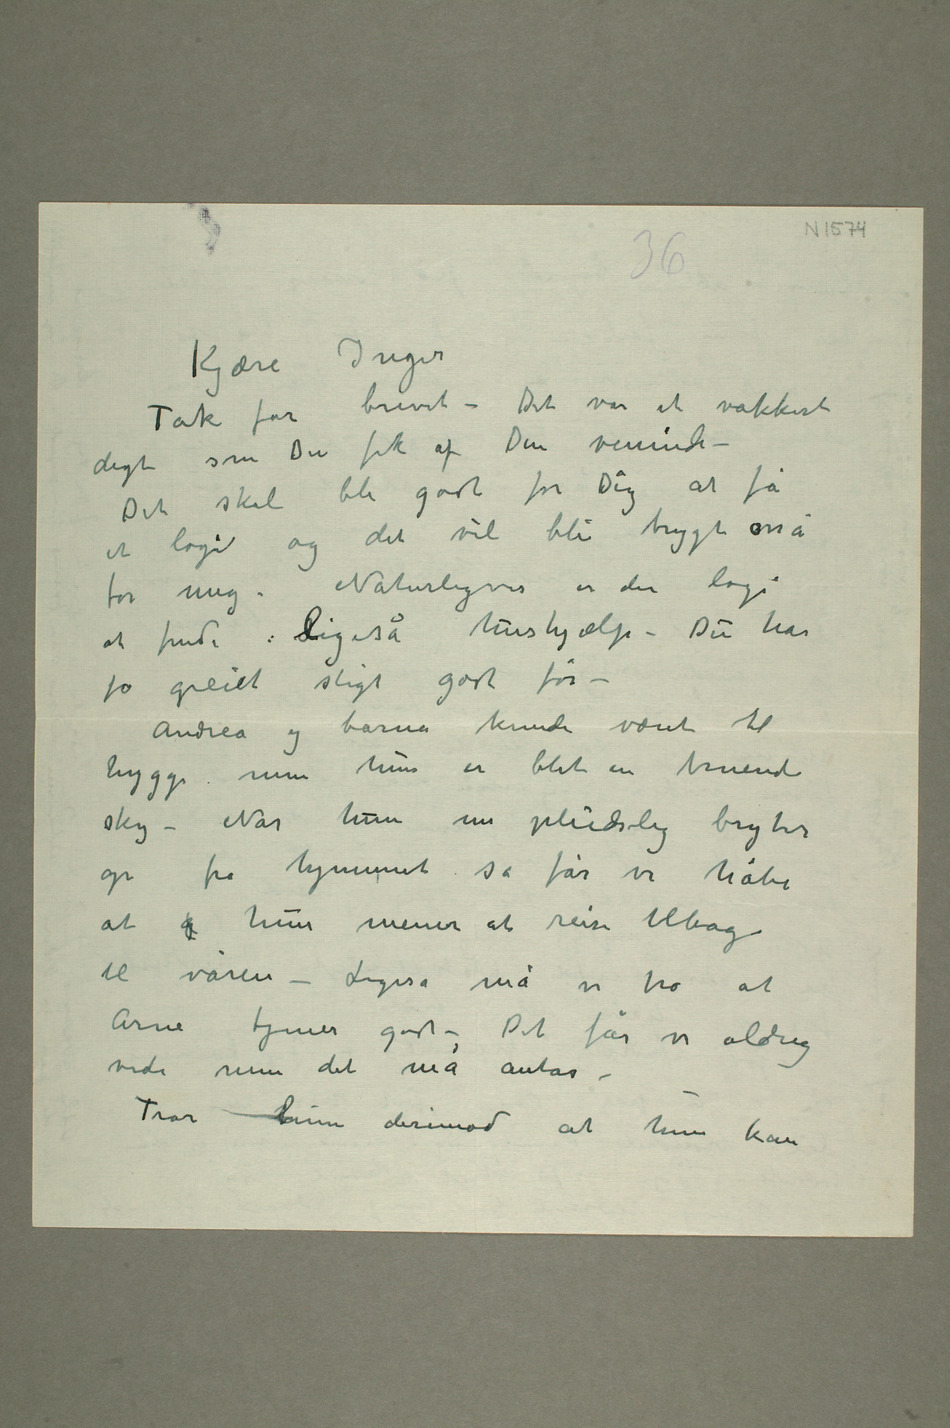 N 1574
36
Kjære Inger
Tak for brevet – Det var et vakkert
digt som Du fik af Din veninde –
Det skal bli godt for Dig at få
et logi og det vil bli trygt også
for mig. Naturligvis er der logi
at finde. Ligeså hushjælp – Du har
jo greiet sligt godt før –
Andrea og barna kunde været til
hygge men hun er blet en truende
sky – Når hun nu pludslig bryter
op fra hjemmet så får vi håbe
at hun mener at reise tilbage
til våren – Ligeså må vi tro at
Arne tjener godt –, Det får vi aldrig
vide men det må antas –
Tror hun derimod at hun kan